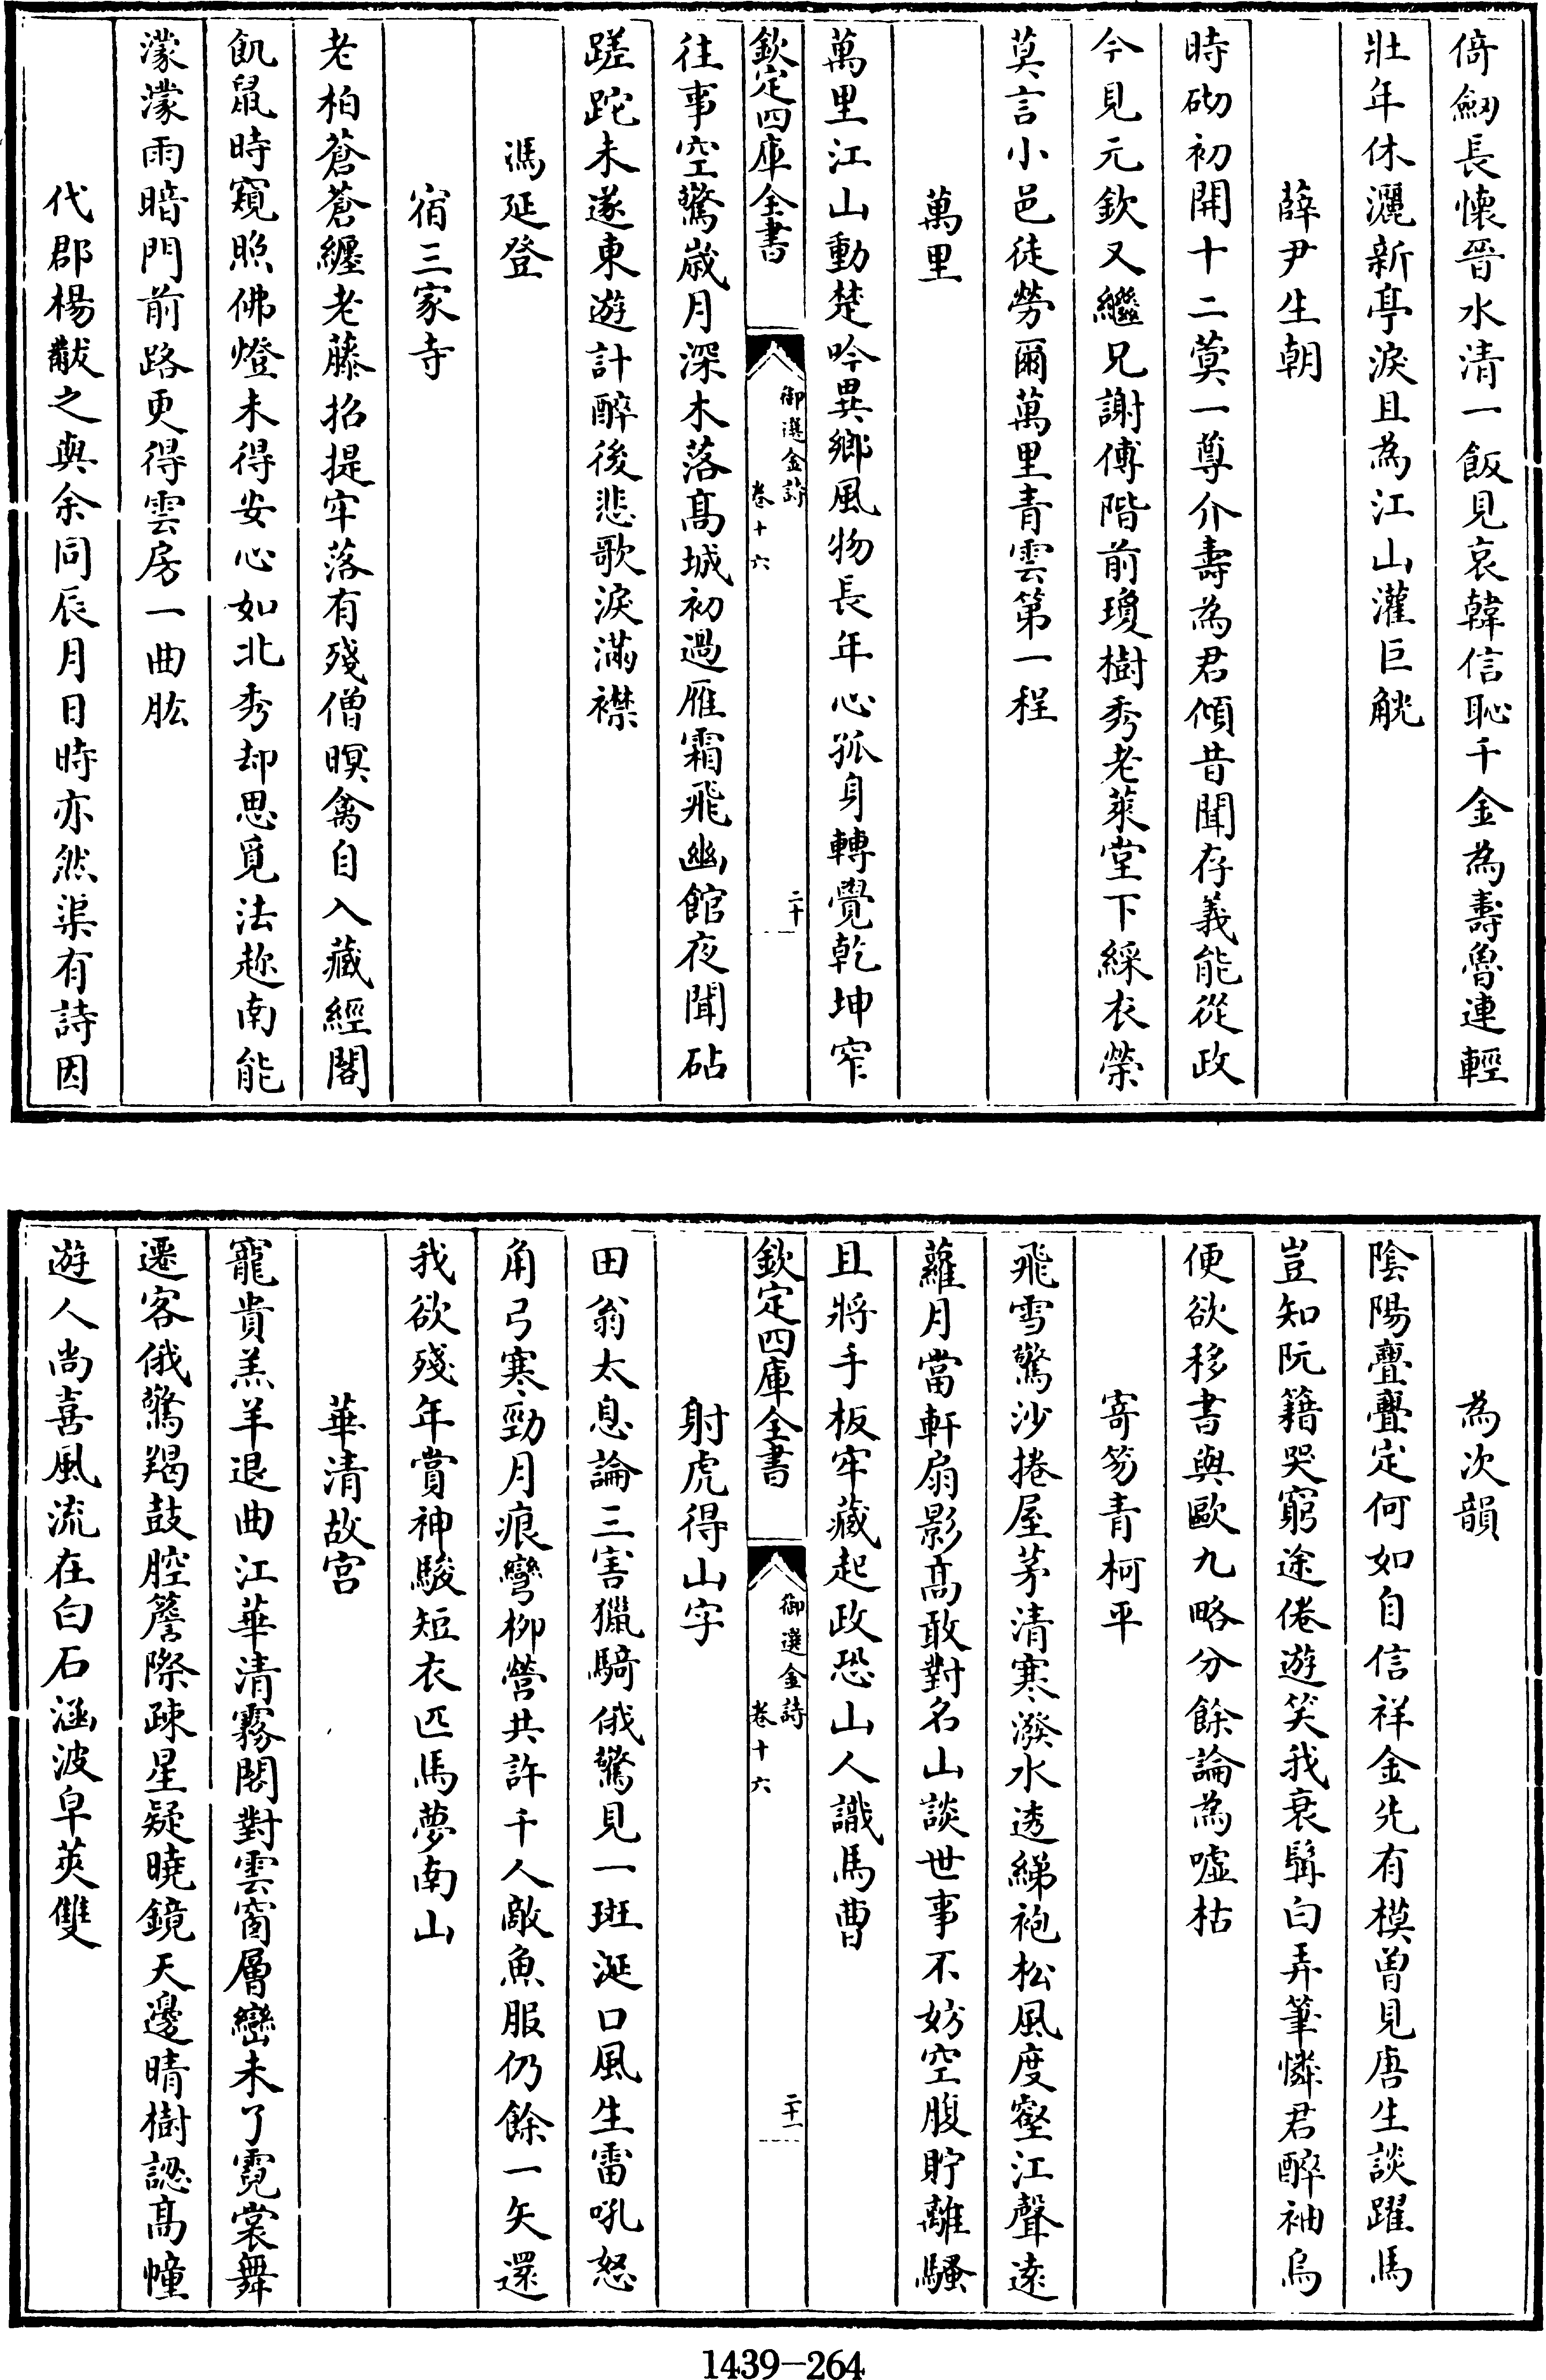 倚劒長懷晉水清一飯見哀韓信恥千金為壽魯連輕
壯年休灑新亭淚且為江山灌巨觥
薛尹生朝
時砌初開十二蓂一尊介壽為君傾昔聞存義能從政
今見元欽又繼兄謝傅階前瓊樹秀老萊堂下綵衣榮
莫言小邑徒勞爾萬里青雲第一程
萬里
萬里江山動楚吟異鄉風物長年心孤身轉覺乾坤窄
欽定四庫全書
御選金詩
卷十六
二十
往事空驚嵗月深木落髙城初過雁霜飛幽館夜聞砧
蹉跎未遂東遊計醉後悲歌淚滿襟
馮延登
宿三家寺
老柏蒼蒼纏老藤招提牢落有殘僧暝禽自入藏經閣
飢鼠時窺照佛燈未得安心如北秀却思覓法趂南能
濛濛雨暗門前路更得雲房一曲肱
代郡楊黻之與余同辰月日時亦然渠有詩因
為次韻
陰陽亹亹定何如自信祥金先有模曽見唐生談躍馬
豈知阮籍哭窮途倦遊笑我衰髯白弄筆憐君醉袖烏
便欲移書與歐九略分餘論為噓枯
寄笏青柯平
飛雪驚沙捲屋茅清寒潑水透綈袍松風度壑江聲逺
蘿月當軒扇影髙敢對名山談世事不妨空腹貯離騷
且將手板牢藏起政恐山人識馬曹
欽定四庫全書
御選金詩
卷十六
二十一
射虎得山字
田翁太息論三害獵騎俄驚見一斑涎口風生雷吼怒
角弓寒勁月痕彎柳營共許千人敵魚服仍餘一矢還
我欲殘年賞神駿短衣匹馬夢南山
華清故宫
寵貴羔羊退曲江華清霧閣對雲窗層巒未了霓裳舞
遷客俄驚羯鼓腔簷際疎星疑曉鏡天邊晴樹認髙幢
遊人尚喜風流在白石涵波皁莢雙
1439–264